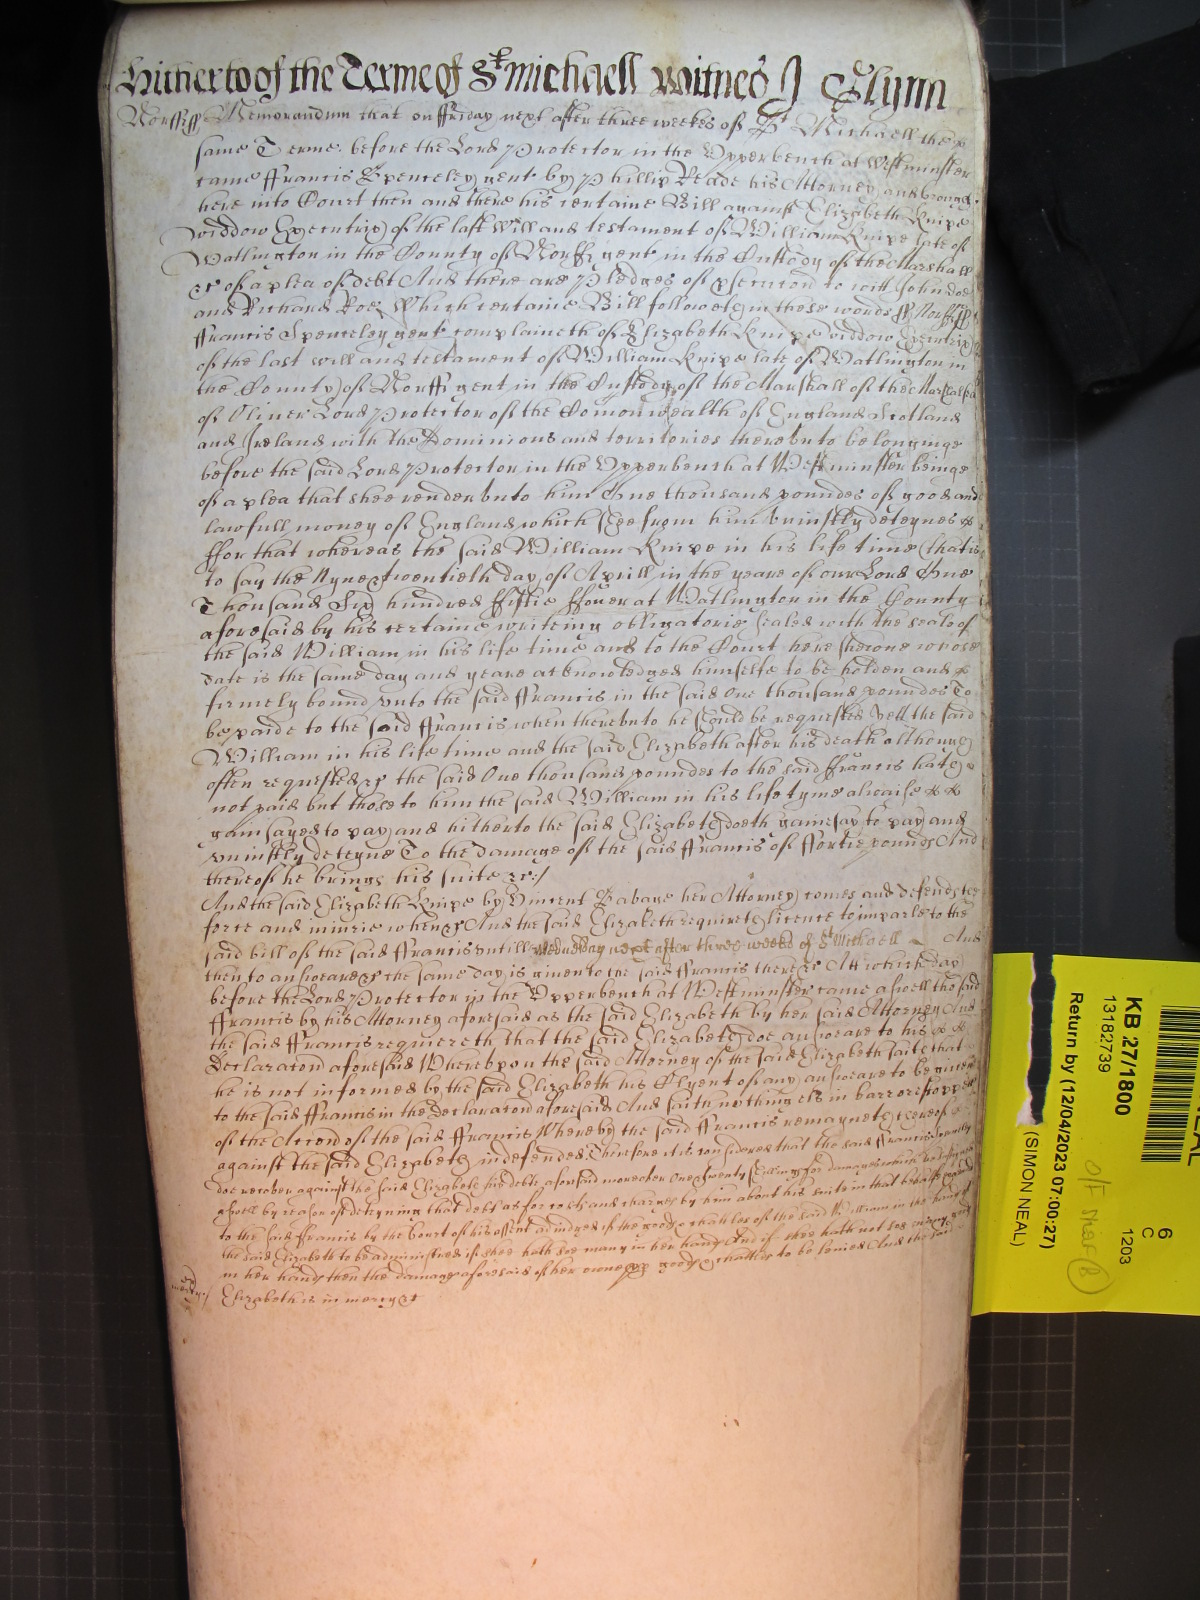 Hitherto of the Terme of St Michaell Witnes J Glynn
Norff ss Memorandum that on ffriday next after three weekes of St Michaell the
same Terme before the Lord Protector in the Vpperbench at Westminster
came ffrancis Spenceley gent by Phillip Reade his Attorney and brought
here into Court then and there his certaine Bill against Elizabeth Knipe
widdow Executrix of the last will and testament of William Knipe late of
Watlington in the County of Norff gent in the Custody of the Marshall
&c of a plea of debt And there are Pledges of prosecucon to witt John Doe
and Richard Roe Which certaine Bill followeth in these words ss Norff ss
ffrancis Spenceley gent complaineth of Elizabeth Knipe widdow Executrix
of the last will and testament of William Knipe late of Watlington in
the County of Norff gent in the Custody of the Marshall of the Marshalsea
of Oliuer Lord Protector of the Comonwealth of England Scotland
and Ireland with the Dominions and territories therevnto belonginge
before the said Lord Protector in the Vpperbench at Westminster beinge
of a plea that shee render vnto him One thousand poundes of good and
lawfull money of England which shee from him vniustly deteynes &
ffor that whereas the said William Knipe in his life time that is
to say the Nyne & twentieth day of Aprill in the yeare of our Lord One
Thousand Six hundred ffiftie ffower at Watlington in the County
aforesaid by his certaine writeing obligatorie sealed with the seale of
the said William in his life time and to the Court here shewne whose
date is the same day and yeare acknowledged himselfe to be holden and &
firmely bound vnto the said ffrancis in the said One thousand poundes To
be paide to the said ffrancis when therevnto he should be requested Yett the said
William in his life time and the said Elizabeth after his death although
often requested &c the said One thousand poundes to the said ffrancis hath
not paid but those to him the said William in his life tyme alwaise & &
gainsayed to pay and hitherto the said Elizabeth doeth gainesay to pay and
vniustly deteyne To the damage of the said ffrancis of ffortie pounds And
thereof he brings his suite &c:/
And the said Elizabeth Knipe by Vincent Babage her Attorney comes and defends the
force and iniurie when &c And the said Elizabeth requireth licence to imparle to the
said bill of the said ffrancis vntill Wednesday next after three weeks of St Michaell And
then to answeare &c the same day is giuen to the said ffrancis there &c Att which day
before the Lord Protector in the Vpperbench at Westminster came aswell the said
ffrancis by his Attorney aforesaid as the said Elizabeth by her said Attorney And
the said ffrancis requireth that the said Elizabeth doe answeare to his & &
Declaracon aforesaid Wherevpon the said Attorney of the said Elizabeth saith that
he is not informed by the said Elizabeth his Clyent of any answeare to be giuen
to the said ffrancis in the declaracon aforesaid And saith nothing els in barre
of the Accon of the said ffrancis Whereby the said ffrancis remayneth thereof
against the said Elizabeth indefended Therefore it is considered that the said ffrancis
doe recouer against the said Elizabeth his debt aforesaid moreouer One & twenty shillings for damages which
aswell by reason of deteyning that debt as for costs and charges by him about his suite in that behalfe
to the said ffrancis by the Court of his assent adiudged of the goods & chattles of the said William in the hands of
the said Elizabeth to be administred if shee hath soe many in her hands And if shee hath not soe many
in her hands then the damages aforesaid of her owne goods & chattles to be levied And the said
Elizabeth is in mercy &c
mercy:/
KB 27/1800
13182739
Return by (12/04/2023 07:00:27)
(SIMON NEAL)
6
C
1203